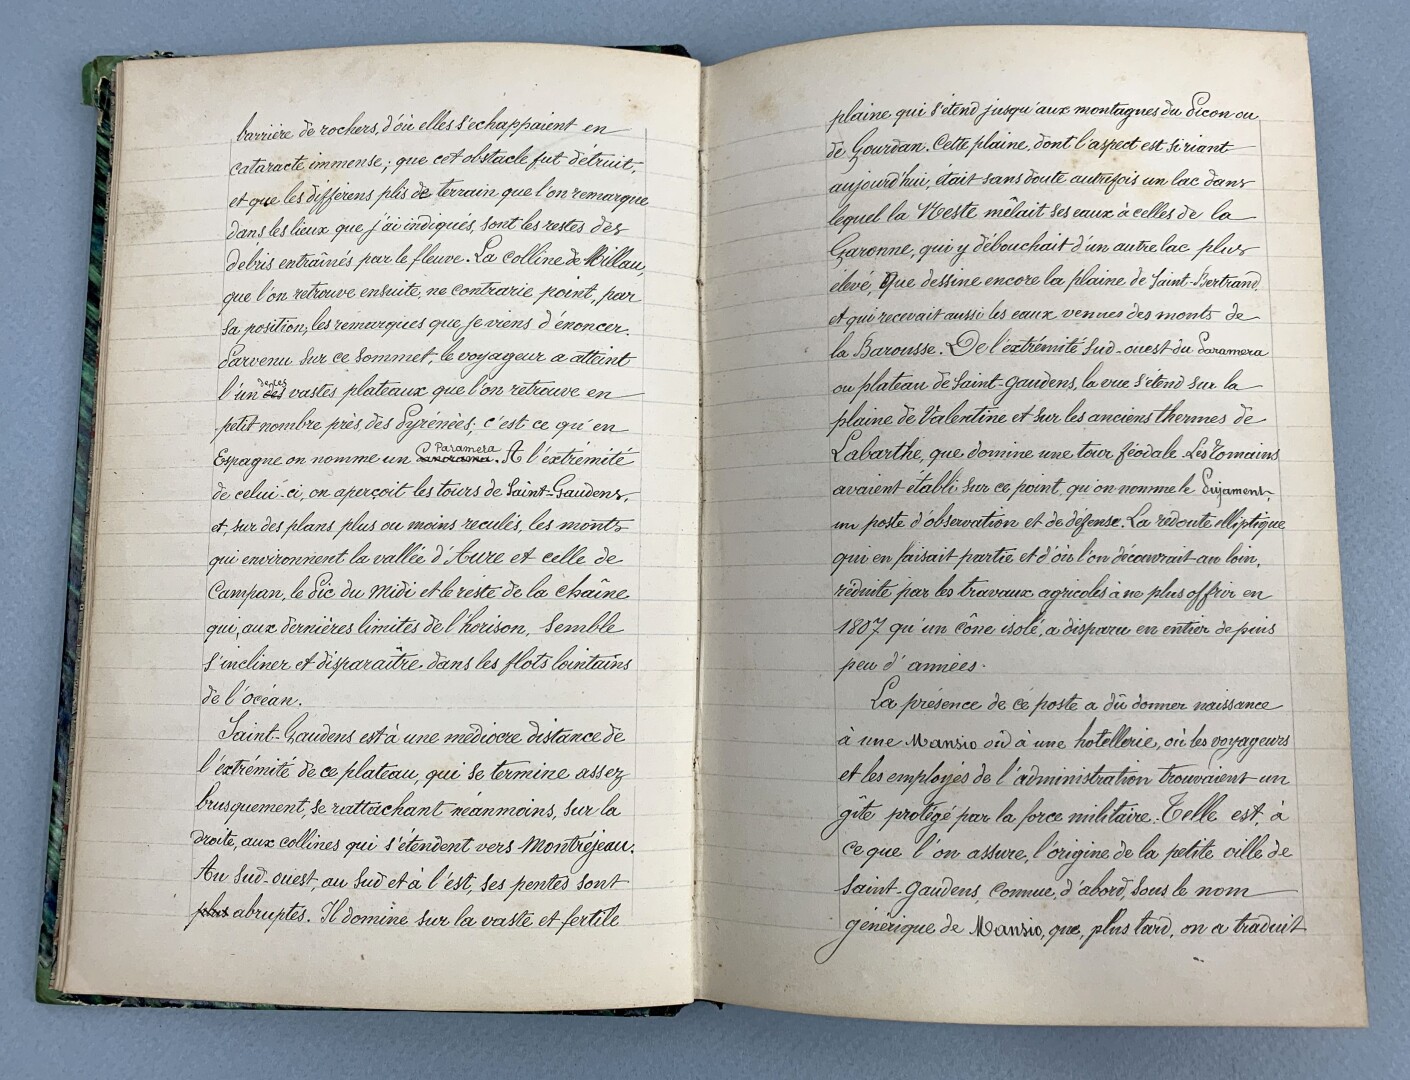 barrière de rochers, d'où elles s'echappaient en
cataracte immense; que cet obstacle fut détruit,
et que les différens plis de terrain que l'on remarque
dans les lieux que j'ai indiqués, sont les restes des
débris entraînés par le fleuve. La colline de Millau,
que l'on retrouve ensuite, ne contrarie point, par
sa position, les remarques que je viens d'énoncer.
Parvenu sur ce sommet, le voyageur a atteint
l'un de ces vastes plateaux que l'on retrouve en
petit nombre près des Pyrénées; c'est ce qu'en
Espagne on nomme un Paramera. A l'extrémité
de celui-ci, on aperçoit les tours de Saint-Gaudens,
et, sur des plans plus ou moins reculés, les monts
qui environnent la vallée d'Aure et celle de
Campan, le Pic du Midi et le reste de la chaîne
qui, aux dernières limites de l'horison, semble
s'incliner et disparaître dans les flots lointains
de l'océan.
Saint-Gaudens est à une médiocre distance de
l'extrémité de ce plateau, qui se termine assez
brusquement, se rattachant néanmoins, sur la
droite, aux collines qui s'étendent vers Montréjeau.
Au sud-ouest, au sud et à l'est, ses pentes sont
plus abruptes. Il domine sur la vaste et fertile
plaine qui s'étend jusqu'aux montagnes du Picon ou
de Gourdan. Cette plaine, dont l'aspect est si riant
aujourd'hui, était sans doute autrefois un lac dans
lequel la Neste mêlait ses eaux à celles de la
Garonne, qui y débouchait d'un autre lac plus
élevé, que dessine encore la plaine de Saint-Bertrand
et qui recevait aussi les eaux venues des monts de
la Barousse. De l'extrémité sud-ouest du Paramera
ou plateau de Saint-Gaudens, la vue s'étend sur la
plaine de Valentine et sur les anciens thermes de
Labarthe, que domine une tour féodale. Les Romains
avaient établi sur ce point, qu'on nomme le Pujament,
un poste d'observation et de défense. La redoute elliptique
qui en faisait partie et d'où l'on découvrait au loin,
réduite par les travaux agricoles à ne plus offrir en
1807 qu'un cône isolé, a disparu en entier depuis
peu d'années.
La présence de ce poste a dû donner naissance
à une Mansio où à une hotellerie, où les voyageurs
et les employés de l'administration trouvaient un
gîte protégé par la force militaire. Telle est, à
ce que l'on assure, l'origine de la petite ville de
Saint-Gaudens, connue, d'abord, sous le nom
générique de Mansio, que, plus tard, on a traduit